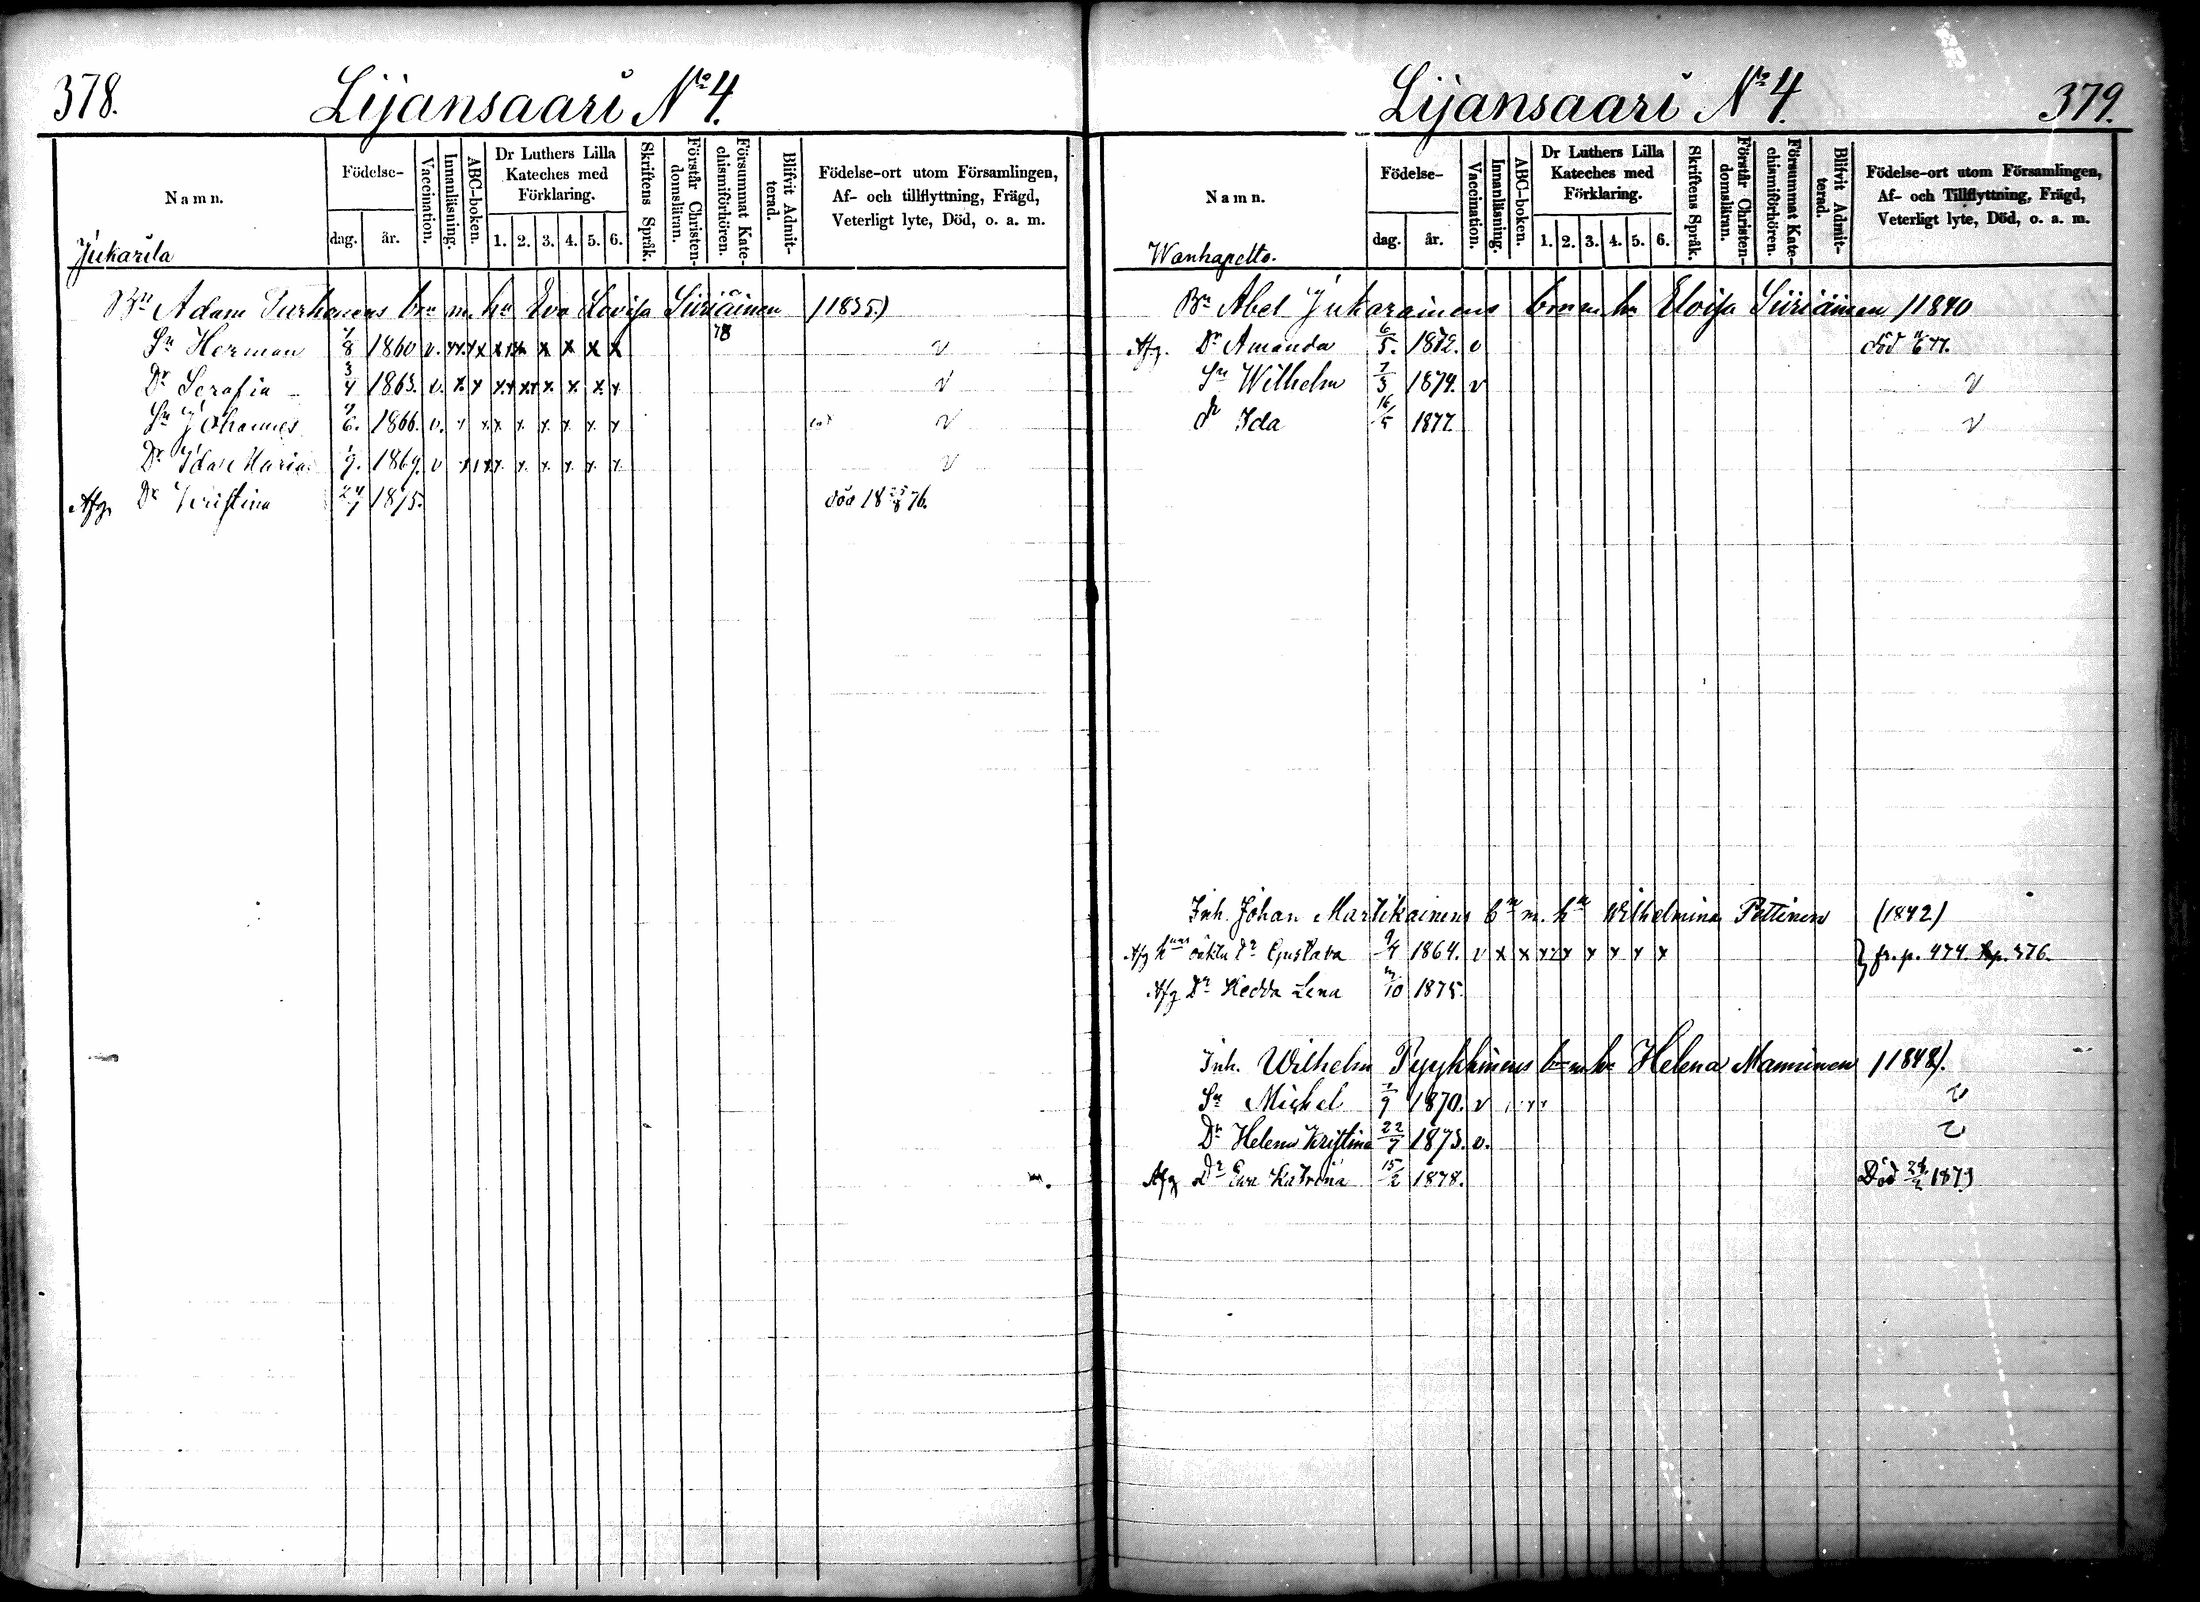 378.
Lijansaari No 4.
Namn.
Födelse-
dag. år.
Vaccination.
Innanläsning.
ABC-boken.
Dr Luthers Lilla
Kateches med
Förklaring.
1. 2. 3. 4. 5. 6.
Skriftens Språk.
Förstår Christen-
domsläran.
Försummat Kate-
chismiförhören.
Blifvit Admit-
terad.
Födelse-ort utom Församlingen,
Af- och tillflyttning, Frägd,
Veterligt lyte, Död, o. a. m.
Jukarila
Bn Adam Turhonens bn m. hu Eva Lovisa Siiriäinen (1835.)
Sn Herman 1/8 1860 v. x x x x x x 78 v
Dr Serafia 3/4 1863. v. x x x x x x x x v
Sn Johannes 1866. v. x x x x x x x v
Dr Ida Maria 1869. v x x x x x x v
Afg. Dr Kristina 24/7 1875. död 18 25/8 76.
Lijansaari No 4.
379.
Namn.
Födelse-
dag. år.
Vaccination.
Innanläsning.
ABC-boken.
Dr Luthers Lilla
Kateches med
Förklaring.
1. 2. 3. 4. 5. 6.
Skriftens Språk.
Förstår Christen-
domsläran.
Försummat Kate-
chismiförhören.
Blifvit Admit-
terad.
Födelse-ort utom Församlingen,
Af- och Tillflyttning, Frägd,
Veterligt lyte, Död, o. a. m.
Wanhapelto.
Bn Abel Jukarainens bn m hu Eloisa Siiriäinen (1840
Afg. Dr Amanda 6/5. 1872. v död 77.
Sn Wilhelm 7/3 1874. v v
dr Ida 16/5 1877. v
Inh. Johan Martikainens bn m. hu Wilhelmina Pettinen (1842)
Afg hans oäkta dr Gustava 9/4 1864. v x x x x x x x x } fr. p. 474. p. 376.
Afg Dr Hedda Lena /10 1875.
Inh. Wilhelm Pyykkinens bn m hu Helena Manninen (1848).
Sn Michel /9 1870. v v
Dr Helena Kristina 22/7 1873. v. v
Afg Dr Eva Katrina 15/2 1878. Död 1879